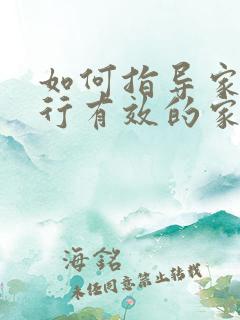 如何指导家
行有效的家
海铭
未经同意禁止转载